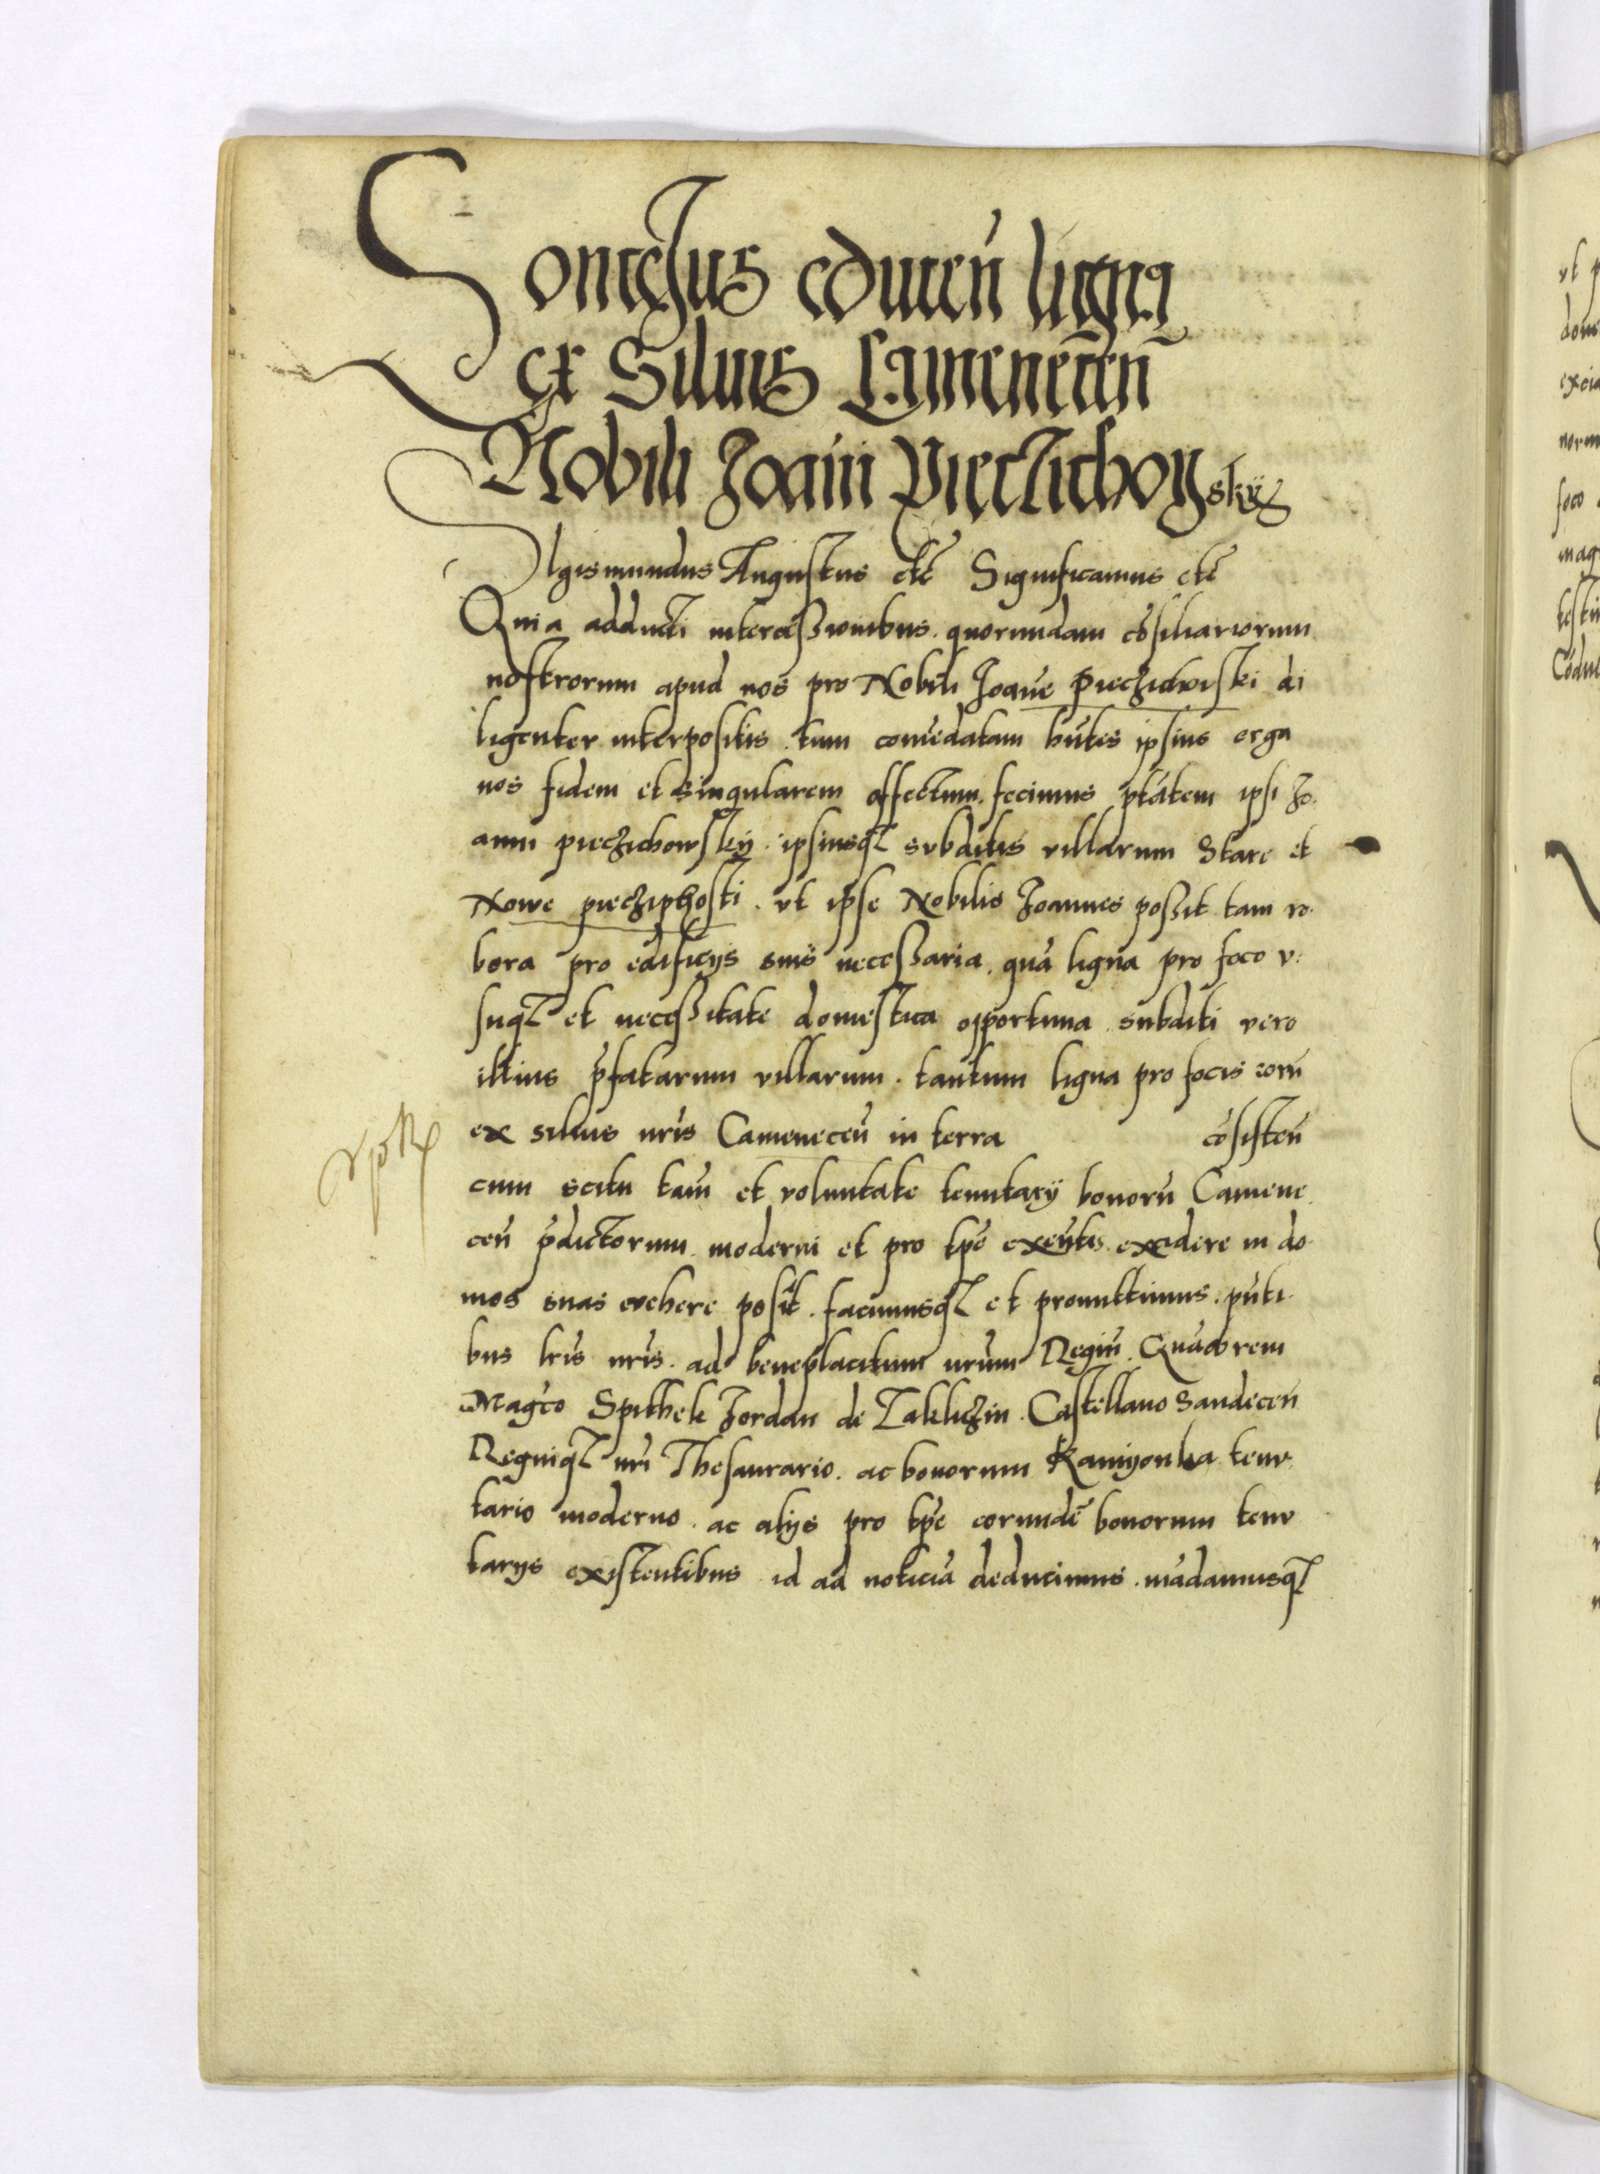 Concessus educen ligna
ex Siluis Camenecen̄
Nobili Joanni Pieczichowsky
Sigismundus Augustus etc̄ Significamus etc̄
Quia adducti intercessionibus. quorundam cōsiliariorum
nostrorum apud nos pro Nobili Joāne Pieczichowski di
ligenter interpositis. tum comēdatam hn̄tes ipsius erga
nos fidem et singularem affectum. fecimus ptātem ipsi Jo.
anni pieczichowsky. ipsiusq̄ subditis villarum Stare et
Nowe pieczichosti. ut ipse Nobilis Joannes possit tam ro.
bora pro edificijs suis necessaria. quā ligna pro foco v.
suq̄ et necessitate domestica opportuna. subditi vero
illius p̄fatarum villarum. tantum ligna pro focis eorū
ex siluis nrīs Camenecen̄ in terra cōsisten̄
cum scitu tam̄ et voluntate tenutarij bonorū Camene.
cen̄ p̄dictorum moderni et pro tp̄e exēntis. excidere in do.
mos suas evehere possit. facimusq̄ et promittimus. pn̄ti.
bus lrīs nrīs. ad beneplacitum nrūm Regiū. Quāobrem
Magc̄o Spithek Jordan de Zakliczin. Castellano Sandecen̄
Regniq̄ nrī Thesaurario. ac bonorum Kamyonka tenv.
tario moderno. ac alijs pro tp̄e eorundē bonorum tenv
tarijs existentibus id ad noticiā deducimus. mādamusq̄